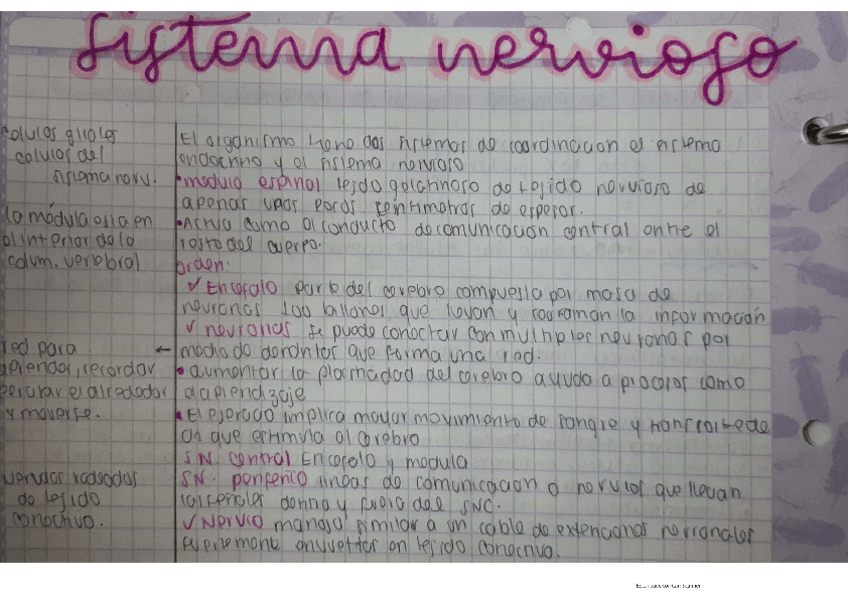 Sistema nervioso
celulas gliales
celulas del
sistema nerv.
la módula esta en
el interior de la
colum. vertebral
red para
aprender, recordar
percibir el alrededor
y moverse.
rodeados
de tejido
conectivo.
El organismo tiene dos sistemas de coordinacion el sistema
endocrino y el sistema nervioso
•medula espinal tejido gelatinoso de tejido nervioso de
apenas unos pocos sentimetros de espesor.
•Actua como el conducto de comunicación central entre el
resto del cuerpo.
orden:
✓ Encefalo parte del cerebro compuesta por masa de
neuronas 100 billones que llevan y programan la información
✓ neuronas se puede conectar con multiples neuronas por
← medio de dendritas que forma una red.
• aumentar la plasticidad del cerebro ayuda a procesos como
el aprendizaje
•El ejercicio implica mayor movimiento de sangre y transporte de
que estimula al cerebro
SN. central Encefalo y medula
SN. periferico lineas de comunicacion o nervios que llevan
las señales dentro y fuera del SNC.
✓Nervio manojo similar a un cable de extenciones neuronales
fuertemente envueltas en tejido conectivo.